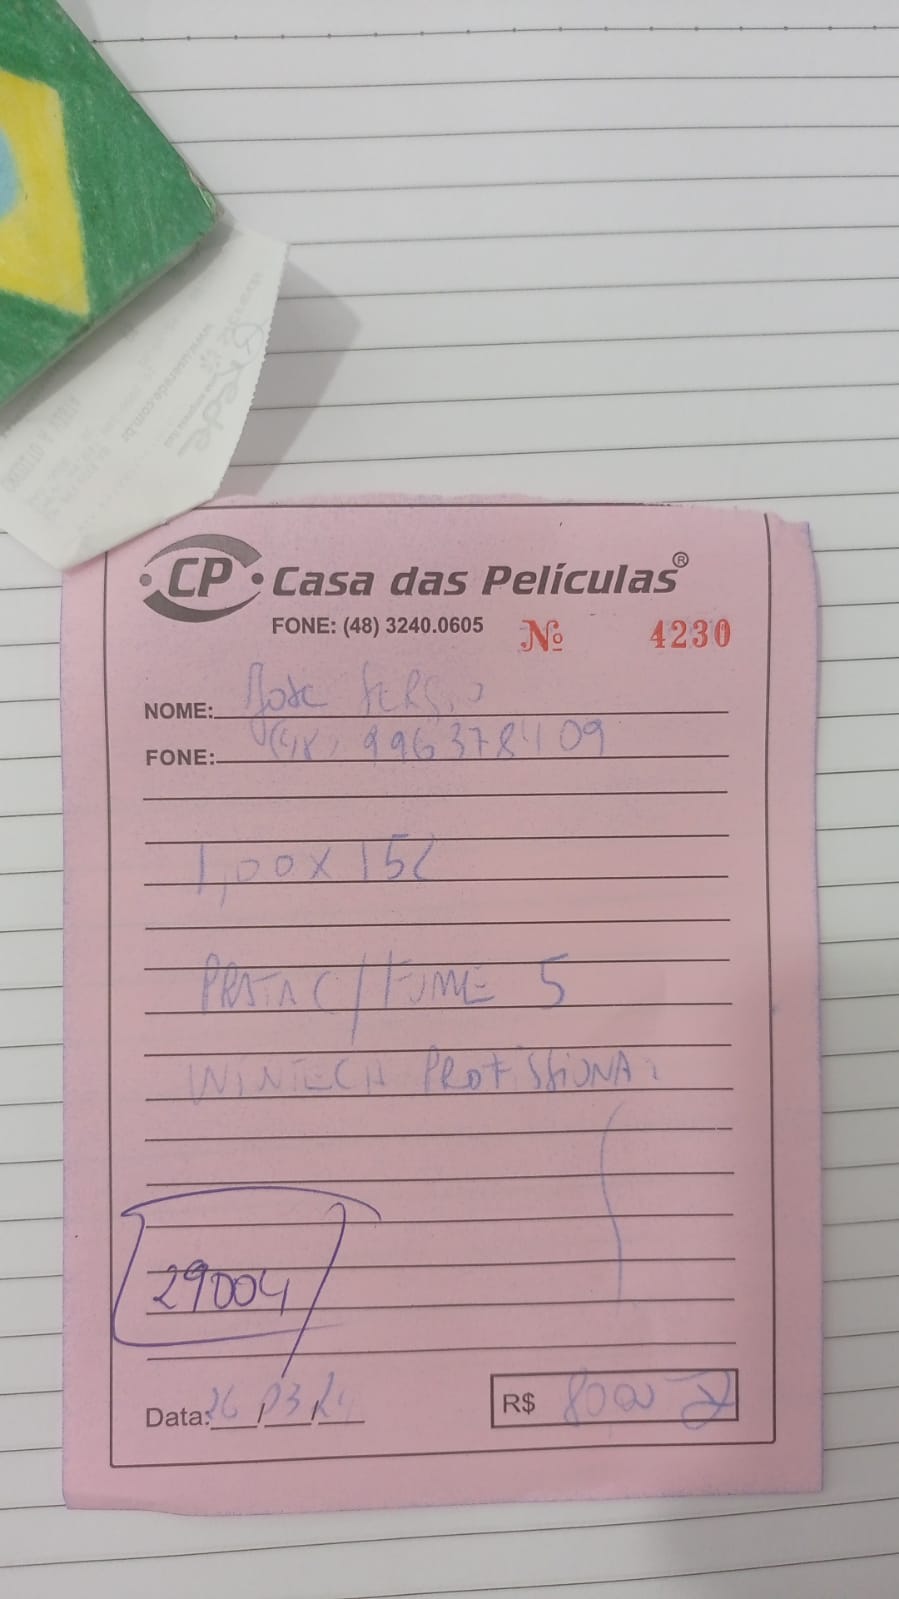 CP Casa das Películas®
FONE: (48) 3240.0605 Nº 4230
NOME: José Sergio
FONE: (48) 996378409
1,00x152
PRATA C/ FUME 5
WINTECH PROFISSIONAL
29004
Data: 26/03/24 R$ 80,00